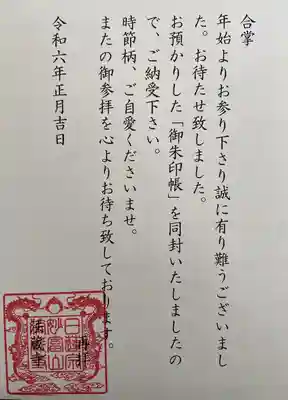 合掌
年始よりお参り下さり誠に有り難うございまし
た。お待たせ致しました。
お預かりした「御朱印帳」を同封いたしましたの
で、ご納受下さい。
時節柄、ご自愛くださいませ。
またの御参拝を心よりお待ち致しております。
再拝
令和六年正月吉日
日蓮宗
妙高山
法蔵寺